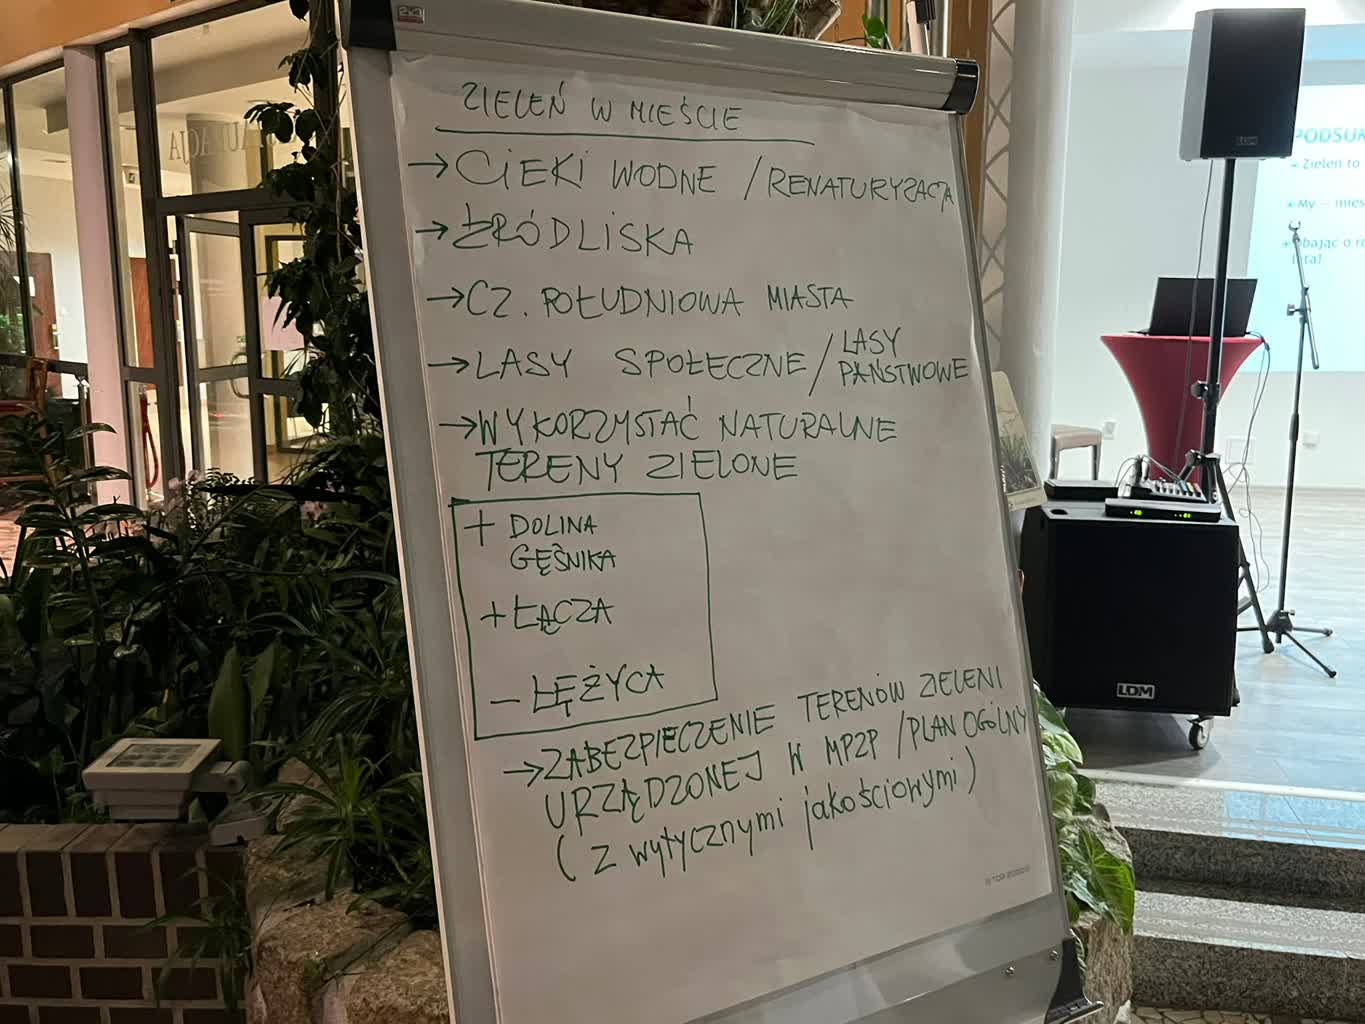 ZIELEŃ W MIEŚCIE
→ CIEKI WODNE / RENATURYZACJA
→ ŹRÓDLISKA
→ CZ. POŁUDNIOWA MIASTA
→ LASY SPOŁECZNE / LASY PAŃSTWOWE
→ WYKORZYSTAĆ NATURALNE
TERENY ZIELONE
+ DOLINA
GĘŚNIKA
+ ŁĄCZA
– ŁĘŻYCA
→ ZABEZPIECZENIE TERENÓW ZIELENI
URZĄDZONEJ W MPZP / PLAN OGÓLNY
( z wytycznymi jakościowymi )
PODSU
Zieleń to
My – mies
LDM
LDM